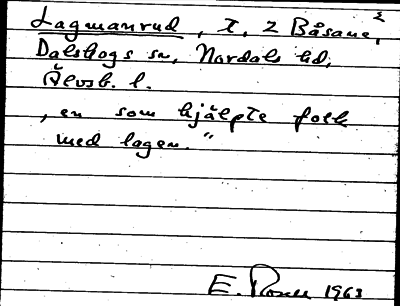 Lagmanrud, t, 2 Båsane,
Dalskogs sn, Nordals hd,
Älvsb. l.
"en som hjälpte folk
med lagen."
E. 1963